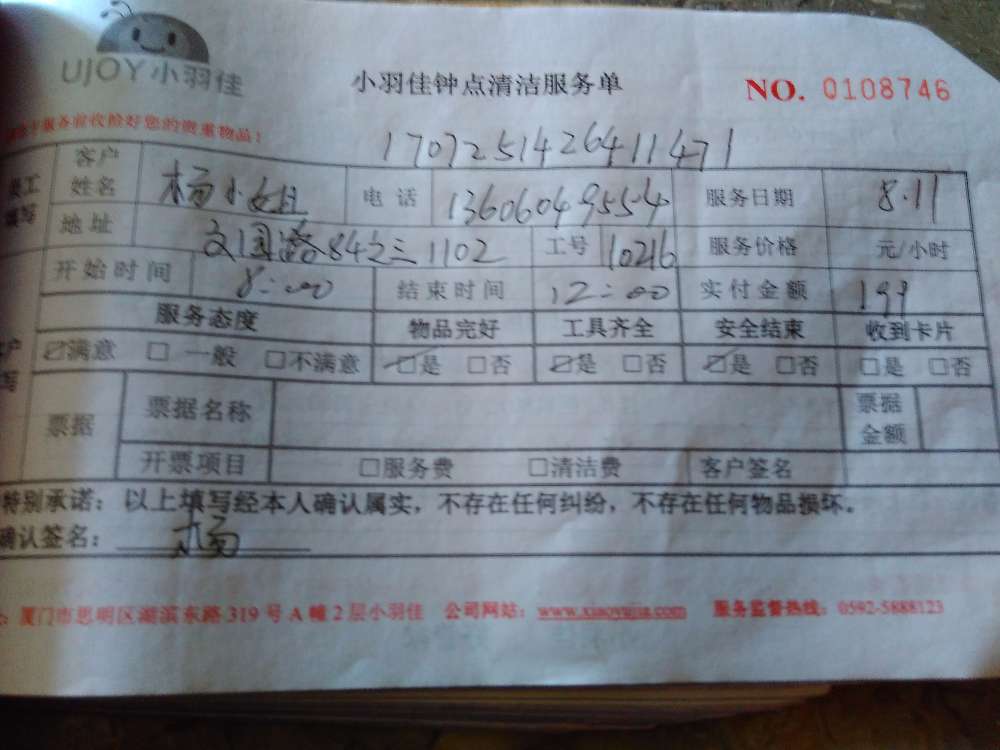 UJOY小羽佳
小羽佳钟点清洁服务单
NO. 0108746
服务前收捡好您的贵重物品!
1707251426411471
客户姓名 杨小姐 电话 13606049554 服务日期 8.11
地址 文园路84之三1102 工号 10216 服务价格 元/小时
开始时间 8:00 结束时间 12:00 实付金额 199
服务态度 物品完好 工具齐全 安全结束 收到卡片
☑满意 □一般 □不满意 ☑是 □否 ☑是 □否 ☑是 □否 □是 □否
票据 票据名称 票据金额
开票项目 □服务费 □清洁费 客户签名
特别承诺：以上填写经本人确认属实，不存在任何纠纷，不存在任何物品损坏。
确认签名：杨
厦门市思明区湖滨东路319号A幢2层小羽佳 公司网站：www.xiaoyujia.com 服务监督热线：0592-5888123